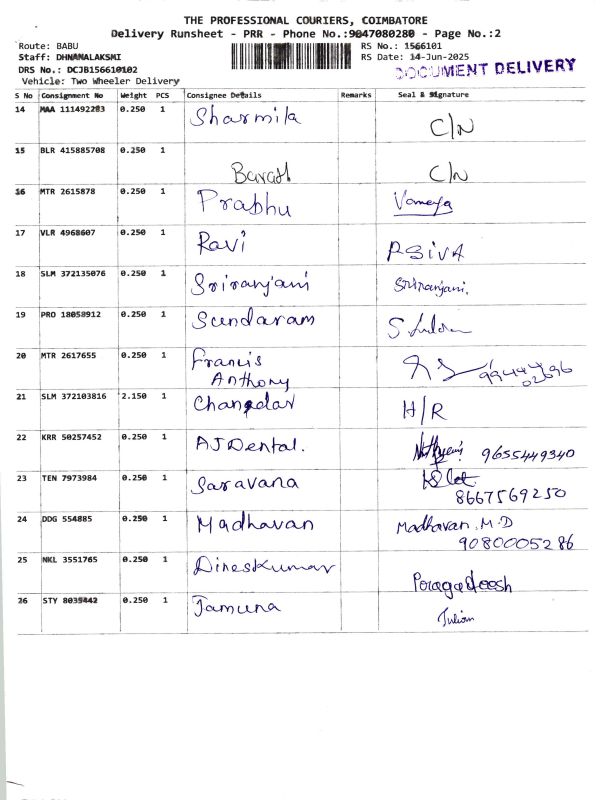 THE PROFESSIONAL COURIERS, COIMBATORE
Delivery Runsheet - PRR - Phone No.:9047080280 - Page No.:2
Route: BABU RS No.: 1566101
Staff: DHNAMALAKSMI RS Date: 14-Jun-2025
DOCUMENT DELIVERY
DRS No.: DCJB156610102
Vehicle: Two Wheeler Delivery
S No Consignment No Weight PCS Consignee Details Remarks Seal & Signature
14 MAA 111492283 0.250 1 Sharmila C/N
15 BLR 415885708 0.250 1 Barath C/N
16 MTR 2615878 0.250 1 Prabhu
17 VLR 4968607 0.250 1 Ravi P SIVA
18 SLM 372135076 0.250 1 Sriranjani Sriranjani.
19 PRO 18058912 0.250 1 Sundaram
20 MTR 2617655 0.250 1 Francis
Anthony
21 SLM 372103816 2.150 1 H/R
22 KRR 50257452 0.250 1 AJ Dental. 9655449340
23 TEN 7973984 0.250 1 Saravana
8667569250
24 DDG 554885 0.250 1 Madhavan Madhavan. M.D
9080005286
25 NKL 3551765 0.250 1 Dineskumar
26 STY 8035442 0.250 1 Jamuna Julian